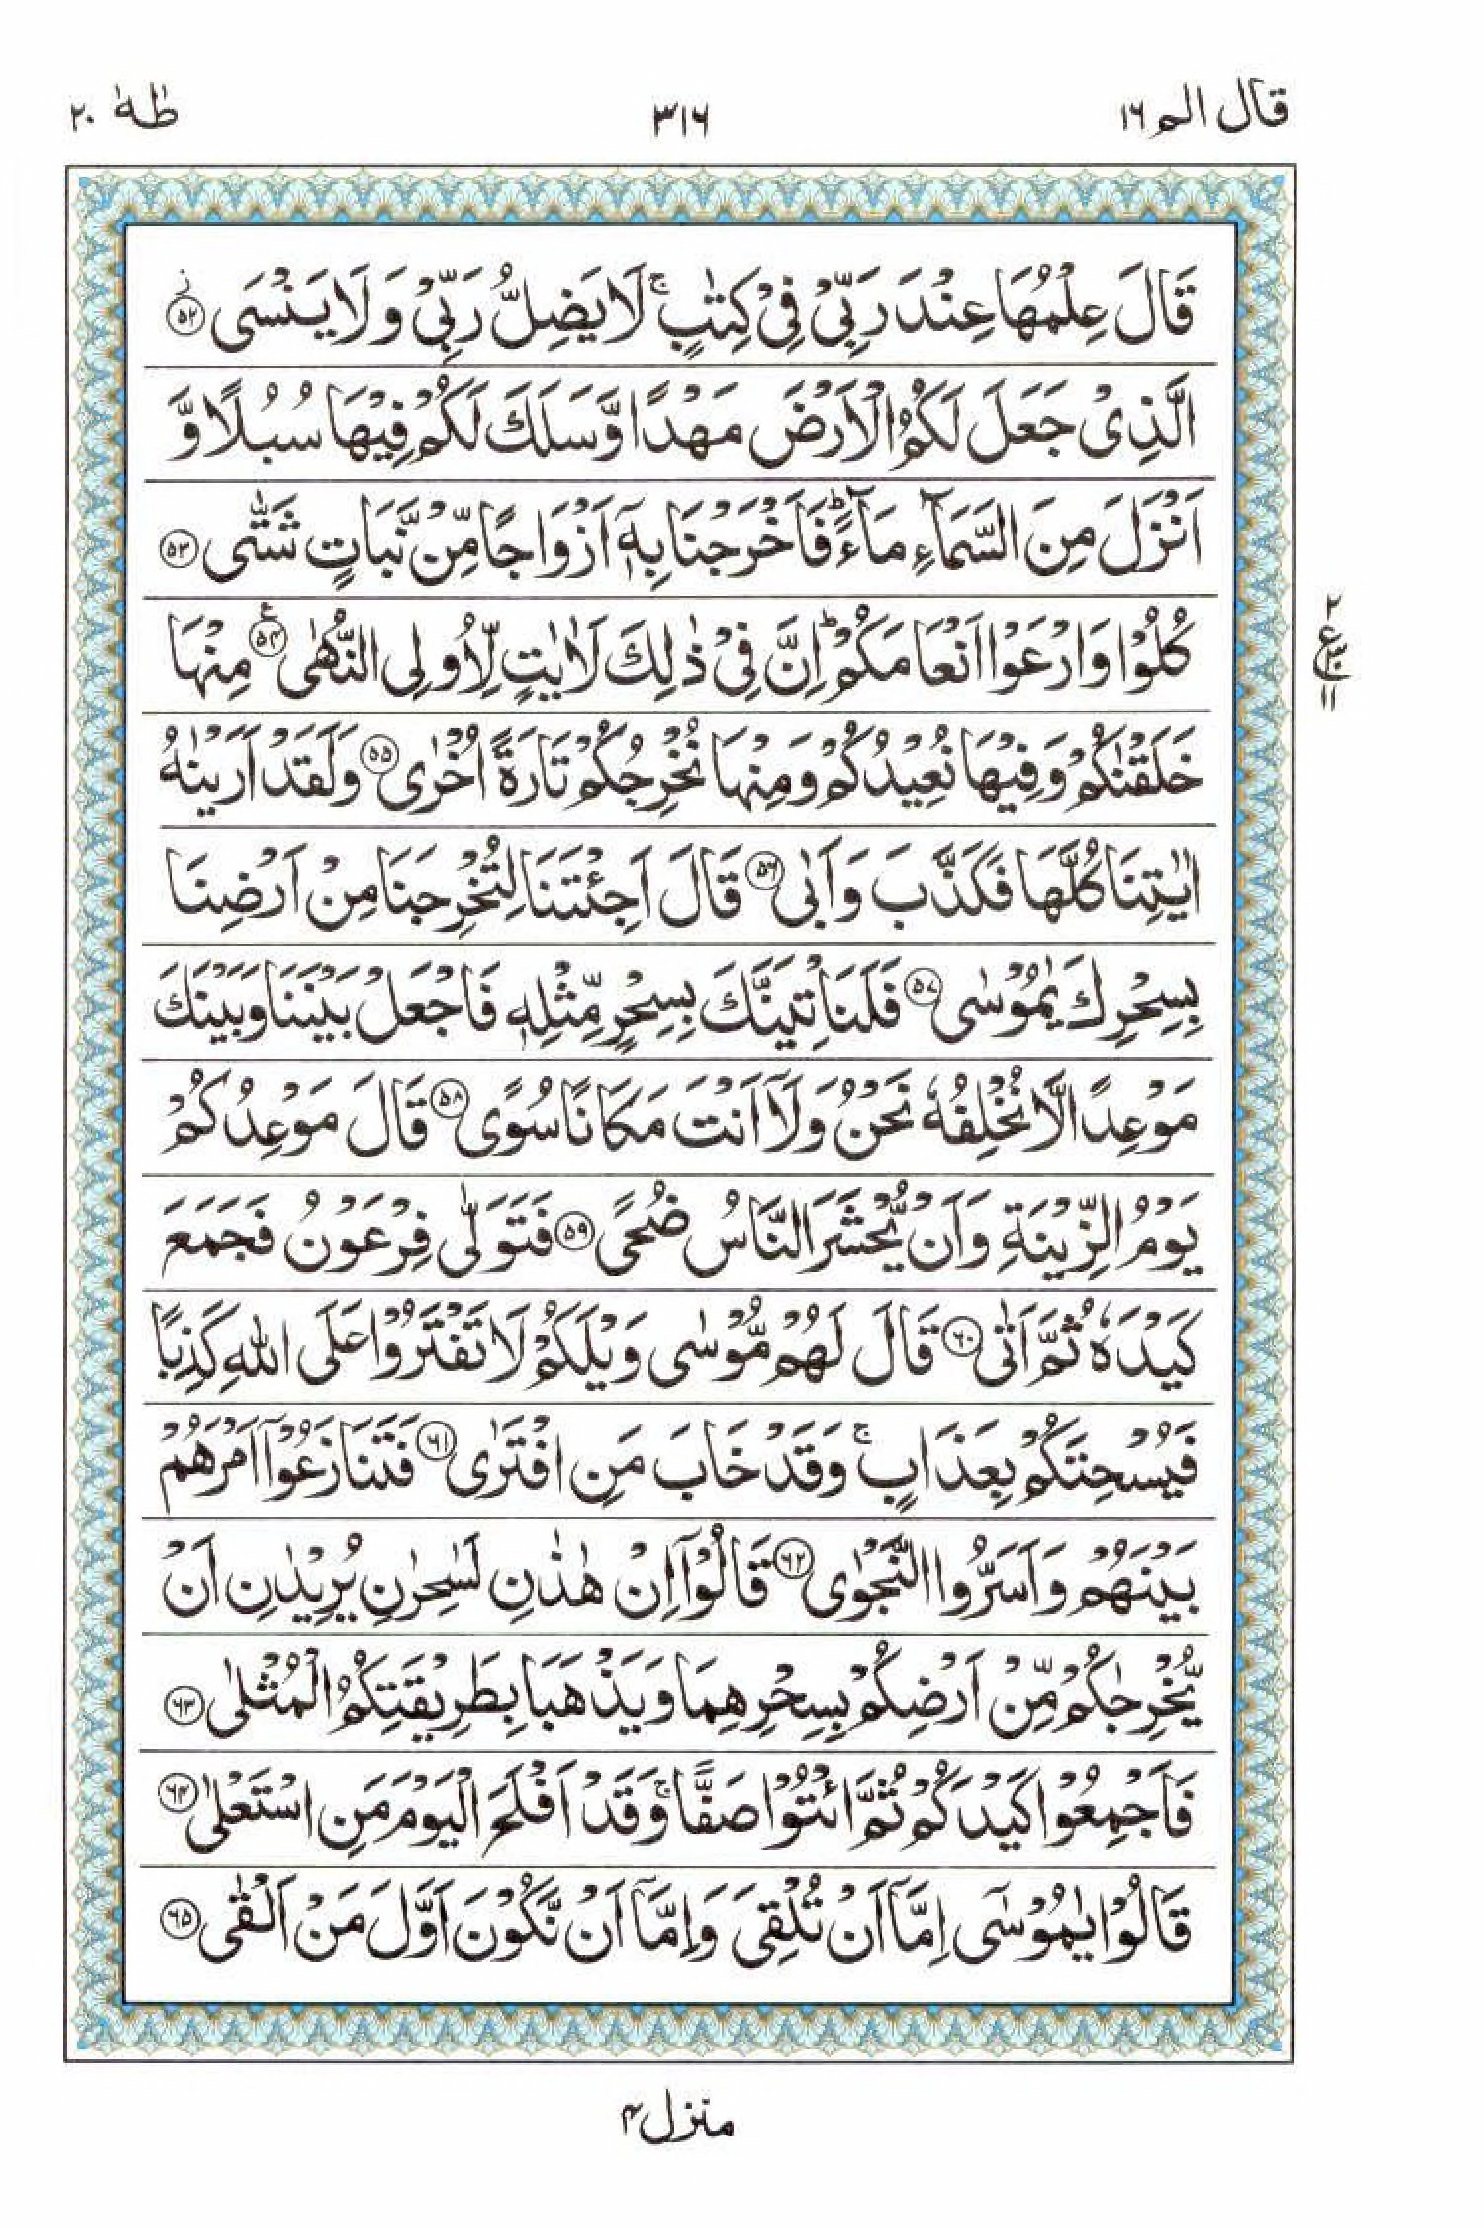 قال الم ١٦
٣١٦
طٰهٰ ٢٠
قَالَ عِلْمُهَا عِنْدَ رَبِّیْ فِیْ كِتٰبٍ ۚ لَا یَضِلُّ رَبِّیْ وَ لَا یَنْسَی ۵۲
الَّذِیْ جَعَلَ لَكُمُ الْاَرْضَ مَهْدًا وَّ سَلَكَ لَكُمْ فِیْهَا سُبُلًا وَّ
اَنْزَلَ مِنَ السَّمَآءِ مَآءً ؕ فَاَخْرَجْنَا بِهٖۤ اَزْوَاجًا مِّنْ نَّبَاتٍ شَتّٰی ۵۳
كُلُوْا وَ ارْعَوْا اَنْعَامَكُمْ ؕ اِنَّ فِیْ ذٰلِكَ لَاٰیٰتٍ لِّاُولِی النُّهٰی ۵۴ مِنْهَا
خَلَقْنٰكُمْ وَ فِیْهَا نُعِیْدُكُمْ وَ مِنْهَا نُخْرِجُكُمْ تَارَةً اُخْرٰی ۵۵ وَ لَقَدْ اَرَیْنٰهُ
اٰیٰتِنَا كُلَّهَا فَكَذَّبَ وَ اَبٰی ۵۶ قَالَ اَجِئْتَنَا لِتُخْرِجَنَا مِنْ اَرْضِنَا
بِسِحْرِكَ یٰمُوْسٰی ۵۷ فَلَنَاْتِیَنَّكَ بِسِحْرٍ مِّثْلِهٖ فَاجْعَلْ بَیْنَنَا وَ بَیْنَكَ
مَوْعِدًا لَّا نُخْلِفُهٗ نَحْنُ وَ لَاۤ اَنْتَ مَكَانًا سُوًی ۵۸ قَالَ مَوْعِدُكُمْ
یَوْمُ الزِّیْنَةِ وَ اَنْ یُّحْشَرَ النَّاسُ ضُحًی ۵۹ فَتَوَلّٰی فِرْعَوْنُ فَجَمَعَ
كَیْدَهٗ ثُمَّ اَتٰی ۶۰ قَالَ لَهُمْ مُّوْسٰی وَیْلَكُمْ لَا تَفْتَرُوْا عَلَی اللّٰهِ كَذِبًا
فَیُسْحِتَكُمْ بِعَذَابٍ ۚ وَ قَدْ خَابَ مَنِ افْتَرٰی ۶۱ فَتَنَازَعُوْۤا اَمْرَهُمْ
بَیْنَهُمْ وَ اَسَرُّوا النَّجْوٰی ۶۲ قَالُوْۤا اِنْ هٰذٰنِ لَسٰحِرٰنِ یُرِیْدٰنِ اَنْ
یُّخْرِجٰكُمْ مِّنْ اَرْضِكُمْ بِسِحْرِهِمَا وَ یَذْهَبَا بِطَرِیْقَتِكُمُ الْمُثْلٰی ۶۳
فَاَجْمِعُوْا كَیْدَكُمْ ثُمَّ ائْتُوْا صَفًّا ۚ وَ قَدْ اَفْلَحَ الْیَوْمَ مَنِ اسْتَعْلٰی ۶۴
قَالُوْا یٰمُوْسٰۤی اِمَّاۤ اَنْ تُلْقِیَ وَ اِمَّاۤ اَنْ نَّكُوْنَ اَوَّلَ مَنْ اَلْقٰی ۶۵
۲
ع
۳۰
۱۱
منزل ۴